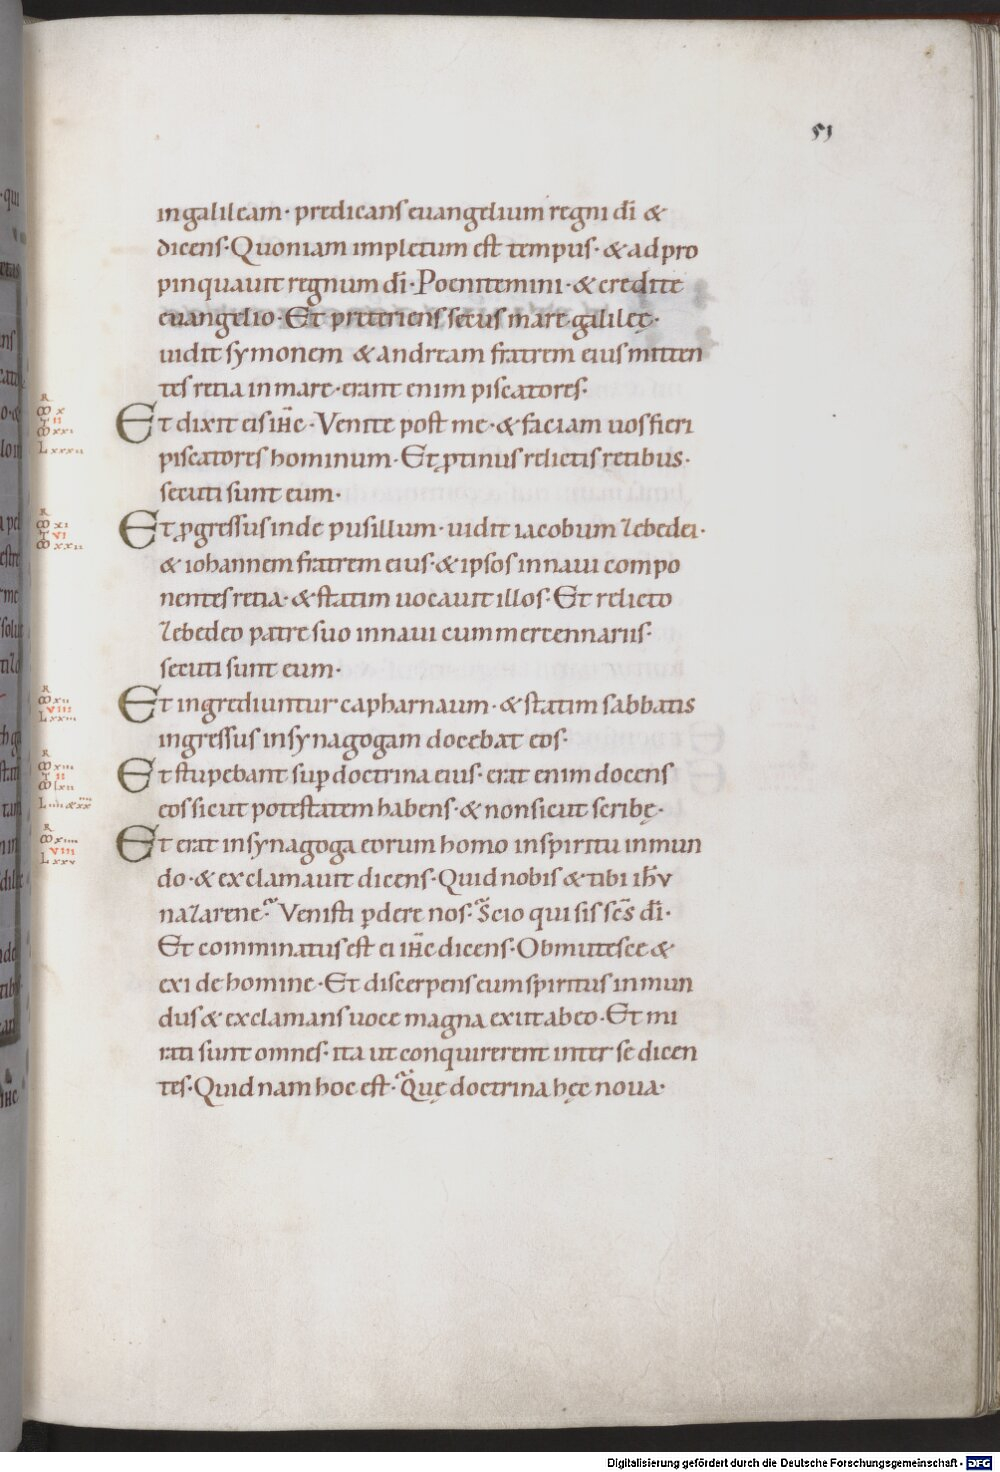 51
in galileam· predicans euangelium regni dī &
dicens· Quoniam impletum est tempus· & adpro
pinquauit regnum dī· Poenitemini· & credite
euangelio· Et preteriens secus mare galilę·
uidit symonem & andream fratrem eius mitten
tes retia in mare· erant enim piscatores·
Et dixit eis iħc· Venite post me· & faciam uos fieri
piscatores hominum· Et ꝓtinus relictis retibus·
secuti sunt eum·
Et ꝓgressus inde pusillum· uidit iacobum zebedei·
& iohannem fratrem eius· & ipsos in naui compo
nentes retia· & statim uocauit illos· Et relicto
zebedeo patre suo in naui cum mercennariis·
secuti sunt eum·
Et ingrediuntur capharnaum· & statim sabbatis
ingressus in synagogam docebat eos·
Et stupebant suꝑ doctrina eius· erat enim docens
eos sicut potestatem habens· & non sicut scribę·
Et erat in synagoga eorum homo in spiritu inmun
do· & exclamauit dicens· Quid nobis & tibi ihū
nazarene· Venisti ꝑdere nos· Scio qui sis scs̄ dī·
Et comminatus est ei iħc dicens· Obmutesce &
exi de homine· Et discerpens eum spiritus inmun
dus & exclamans uoce magna exiit ab eo· Et mi
rati sunt omnes· ita ut conquirerent inter se dicen
tes· Quid nam hoc est· Quę doctrina hęc noua·
Digitalisierung gefördert durch die Deutsche Forschungsgemeinschaft - DFG